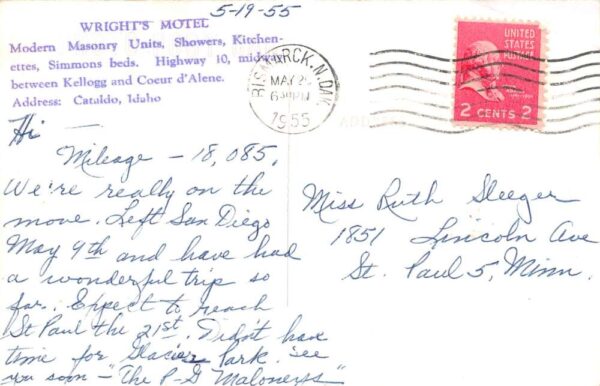 5-19-55
WRIGHT'S MOTEL
Modern Masonry Units, Showers, Kitchen-
ettes, Simmons beds. Highway 10, midway
between Kellogg and Coeur d'Alene.
Address: Cataldo, Idaho
BISMARCK, N. DAK.
MAY 2
6 PM
1955
UNITED
STATES
POSTAGE
2 CENTS 2
Hi —
Mileage - 18,085.
We're really on the
move. Left San Diego
May 9th and have had
a wonderful trip so
far. Expect to reach
St Paul the 21st. Didn't have
time for Glacier Park. See
you soon - "The P-G Maloneys"
Miss Ruth Sleeger
1851 Lincoln Ave
St. Paul 5, Minn.